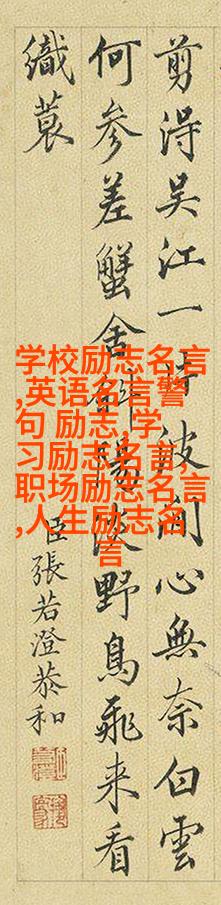 剪淂吴江一波间心無奈白雲
何参差蟹舍斜陽淡野鳥飛来看
織蓑
臣張若澄恭和
学校励志名言
,英语名言警
句 励志,学
习励志名言,
职场励志名言
,人生励志名
言